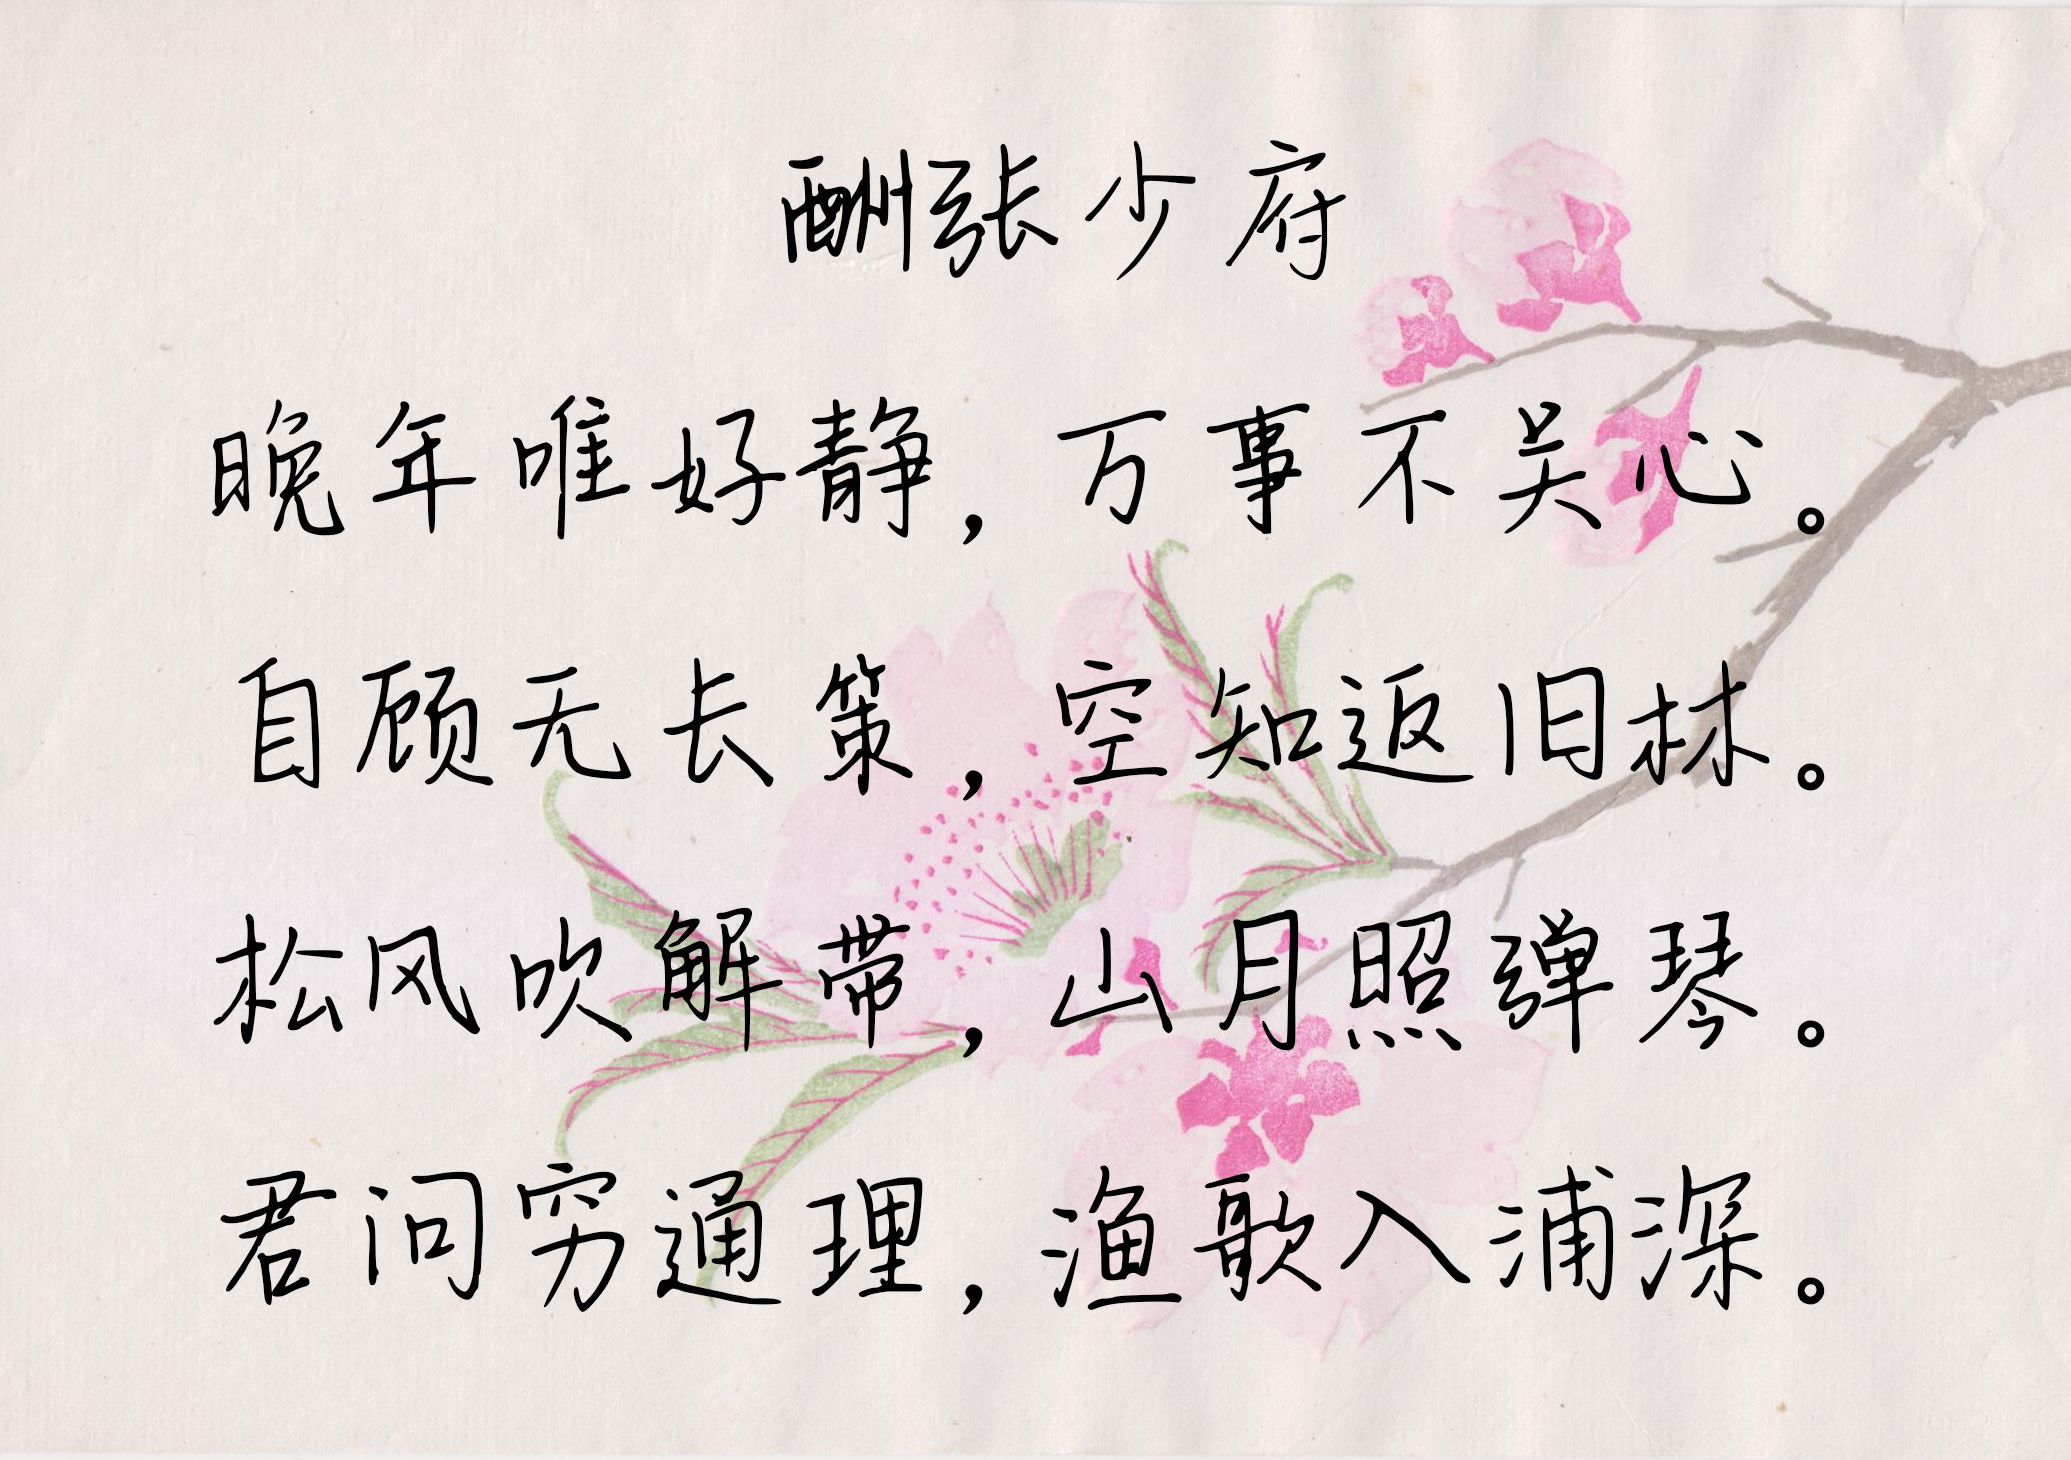 酬张少府
晚年唯好静，万事不关心。
自顾无长策，空知返旧林。
松风吹解带，山月照弹琴。
君问穷通理，渔歌入浦深。